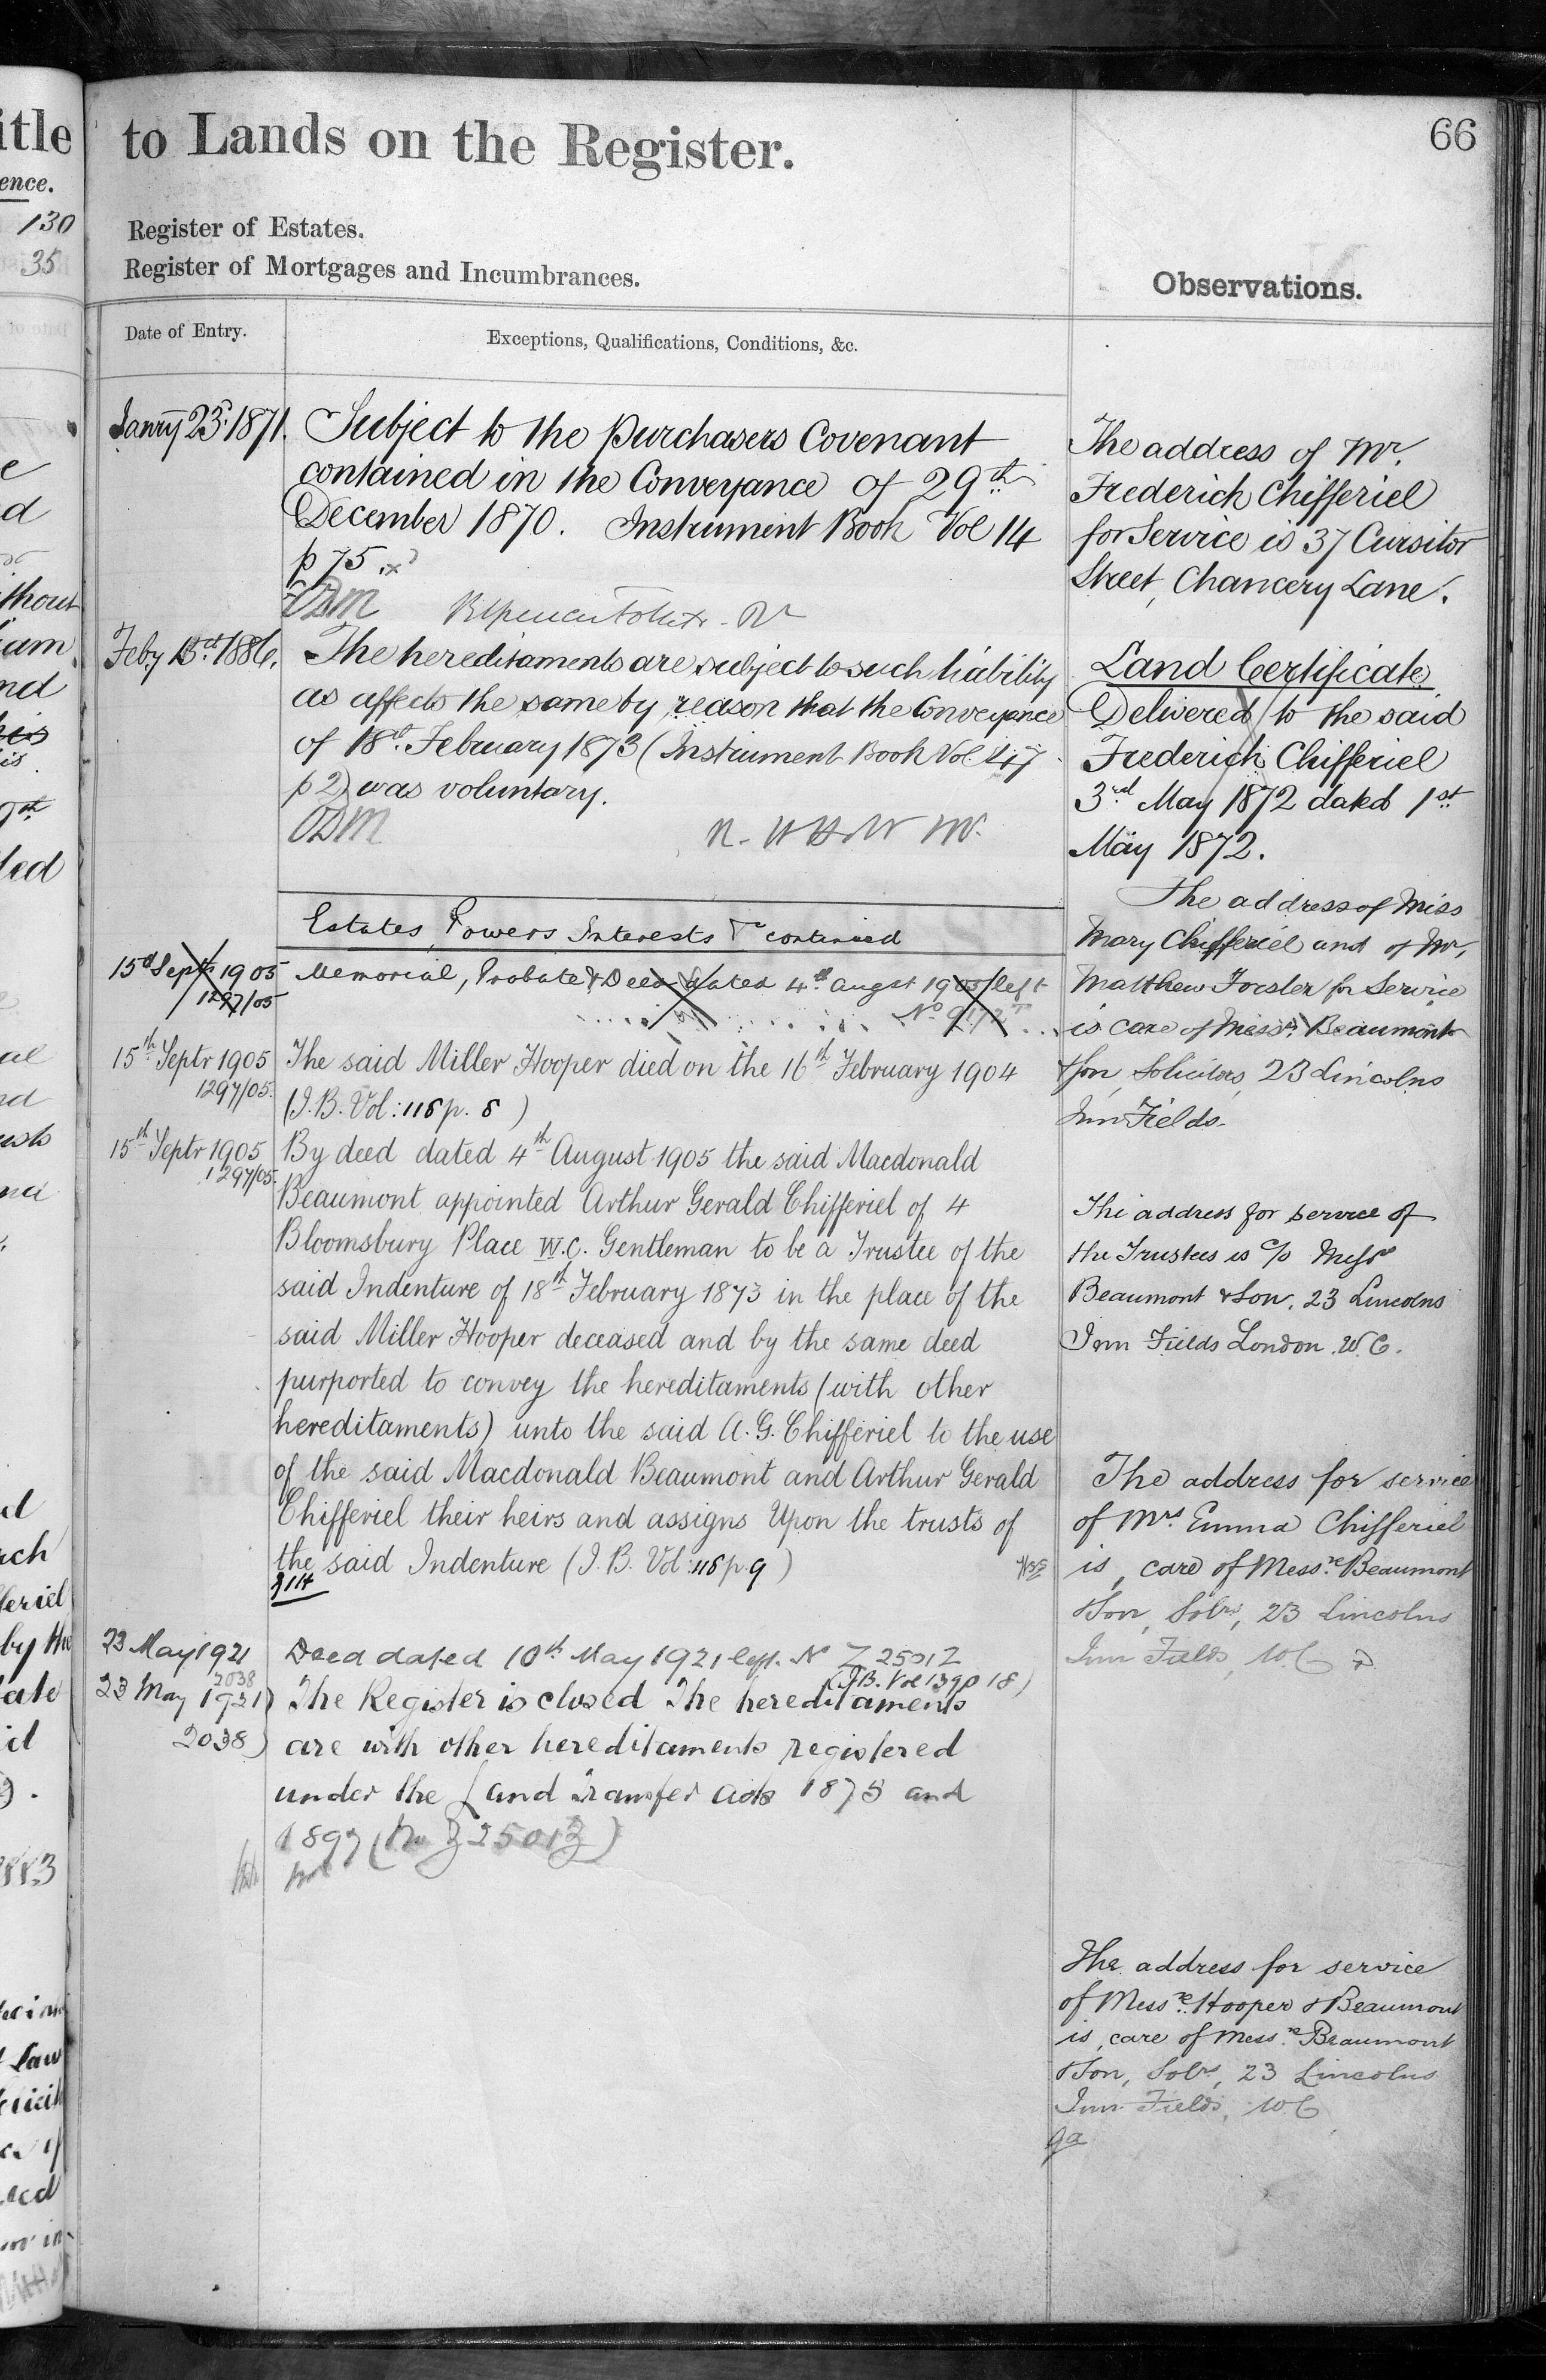 itle
ence.
130
35
to Lands on the Register.
66
Register of Estates.
Register of Mortgages and Incumbrances.
Observations.
Date of Entry.
Exceptions, Qualifications, Conditions, &c.
Janry 23rd 1871.
Subject to the purchasers Covenant
contained in the Conveyance of 29th
December 1870. Instrument Book Vol 14
p 75.
Feby 1886.
The hereditaments are subject to such liability
as affects the same by reason that the Conveyance
of 18th February 1873 (Instrument Book Vol. 47
p 2) was voluntary.
Estates, Powers Interests &c continued
15th Septr 1905
1297/05
Memorial, Probate & Deed dated 4th Augst 1905 left
No
15th Septr 1905
1297/05.
The said Miller Hooper died on the 16th February 1904
(I.B. Vol: 116 p. 8)
15th Septr 1905
1297/05.
By deed dated 4th August 1905 the said Macdonald
Beaumont appointed Arthur Gerald Chifferiel of 4
Bloomsbury Place W.C. Gentleman to be a Trustee of the
said Indenture of 18th February 1873 in the place of the
said Miller Hooper deceased and by the same deed
purported to convey the hereditaments (with other
hereditaments) unto the said A. G. Chifferiel to the use
of the said Macdonald Beaumont and Arthur Gerald
Chifferiel their heirs and assigns Upon the trusts of
the said Indenture (I. B. Vol: 116 p. 9)
23 May 1921
2038
Deed dated 10th May 1921 left. No Z 25012
(I.B. Vol 139 p 18)
23 May 1921)
2038)
The Register is closed The hereditaments
are with other hereditaments registered
under the Land Transfer Acts 1875 and
1897 (No Z 25012)
The address of Mr.
Frederick Chifferiel
for Service is 37 Cursitor
Street, Chancery Lane.
Land Certificate
Delivered to the said
Frederick Chifferiel
3rd May 1872 dated 1st
May 1872.
The address of Miss
Mary Chifferiel and of Mr.
Matthew Forster for Service
is care of Messrs. Beaumont
& Son, Solicitors, 23 Lincolns
Inn Fields.
The address for service of
the Trustees is c/o Messrs
Beaumont & Son, 23 Lincolns
Inn Fields London. W.C.
The address for service
of Mrs. Emma Chifferiel
is, care of Messrs. Beaumont
& Son, Solrs, 23 Lincolns
Inn Fields, W.C.
The address for service
of Messrs. Hooper & Beaumont
is, care of Messrs. Beaumont
& Son, Solrs, 23 Lincolns
Inn Fields, W.C.